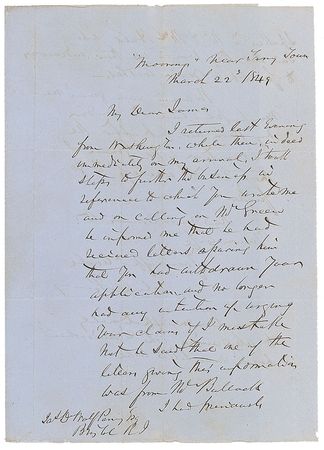 "Moorings" Near Tarry Town
March 22d 1849
My Dear James
I returned last Evening
from Washington. While there, indeed
immediately on my arrival, I took
steps to further the business in
reference to which you wrote me
and on calling on Mr Green
he informed me that he had
received letters assuring him
that you had withdrawn your
application and no longer
had any intention of urging
your claim if I mistake
not he said that one of the
letters giving this information
was from Mr Bullock
I had previously
Jas D Wolf Perry Esq
Bristol R I